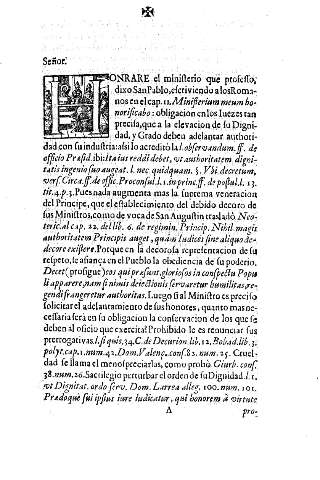 Señor.
HONRARE el ministerio que professo,
dixo San Pablo, escriviendo a los Roma-
nos en el cap. 11. Ministerium meum hono-
rificabo: obligacion en los Iuezes tan
precisa, que a la elevacion de su Digni-
dad, y Grado deben adelantar authori-
dad con su industria: assi lo acreditò la l. observandum. ff. de
officio Præsid. ibi: Ita ius reddi debet, vt authoritatem digni-
tatis ingenio suo augeat. l. nec quidquam. §. Vbi decretum,
vers. Circa. ff. de offic. Proconsul. l. 1. in princ. ff. de postul. l. 13.
tit. 4. p. 3. Pues nada augmenta mas la suprema veneracion
del Principe, que el establecimiento del debido decoro de
sus Ministros, como de voca de San Augustin trasladò Neo-
teric. al cap. 22. del lib. 6. de regimin. Princip. Nihil magis
authoritatem Principis auget, quàm Iudices sine aliquo de-
decore existere. Porque en la decorosa representacion de su
respeto, se afiança en el Pueblo la obediencia de su poderio,
Decet (prosigue) eos qui præsunt gloriosos in conspectu Popu
li apparere, nam si nimis deiectionis servaretur humilitas, re-
gendi frangeretur authoritas. Luego si al Ministro es preciso
solicitar el adelantamiento de sus honores, quanto mas ne-
cessaria serà en su obligacion la conservacion de los que se
deben al oficio que exercita? Prohibido le es renunciar sus
prerrogativas. l. si quis, 34. C. de Decurion. lib. 12. Bobad. lib. 3.
polyt. cap. 1. num. 42. Dom. Valenç. cons. 82. num. 25. Cruel-
dad se llama el menospreciarlas, como probò Giurb. cons.
38. num. 26. Sacrilegio perturbar el orden de su Dignidad. l. 1.
vt Dignitat. ordo serv. Dom. Larrea alleg. 100. num. 101.
Prædoque sui ipsius iure Iudicatur, qui honorem à virtute
A pro-